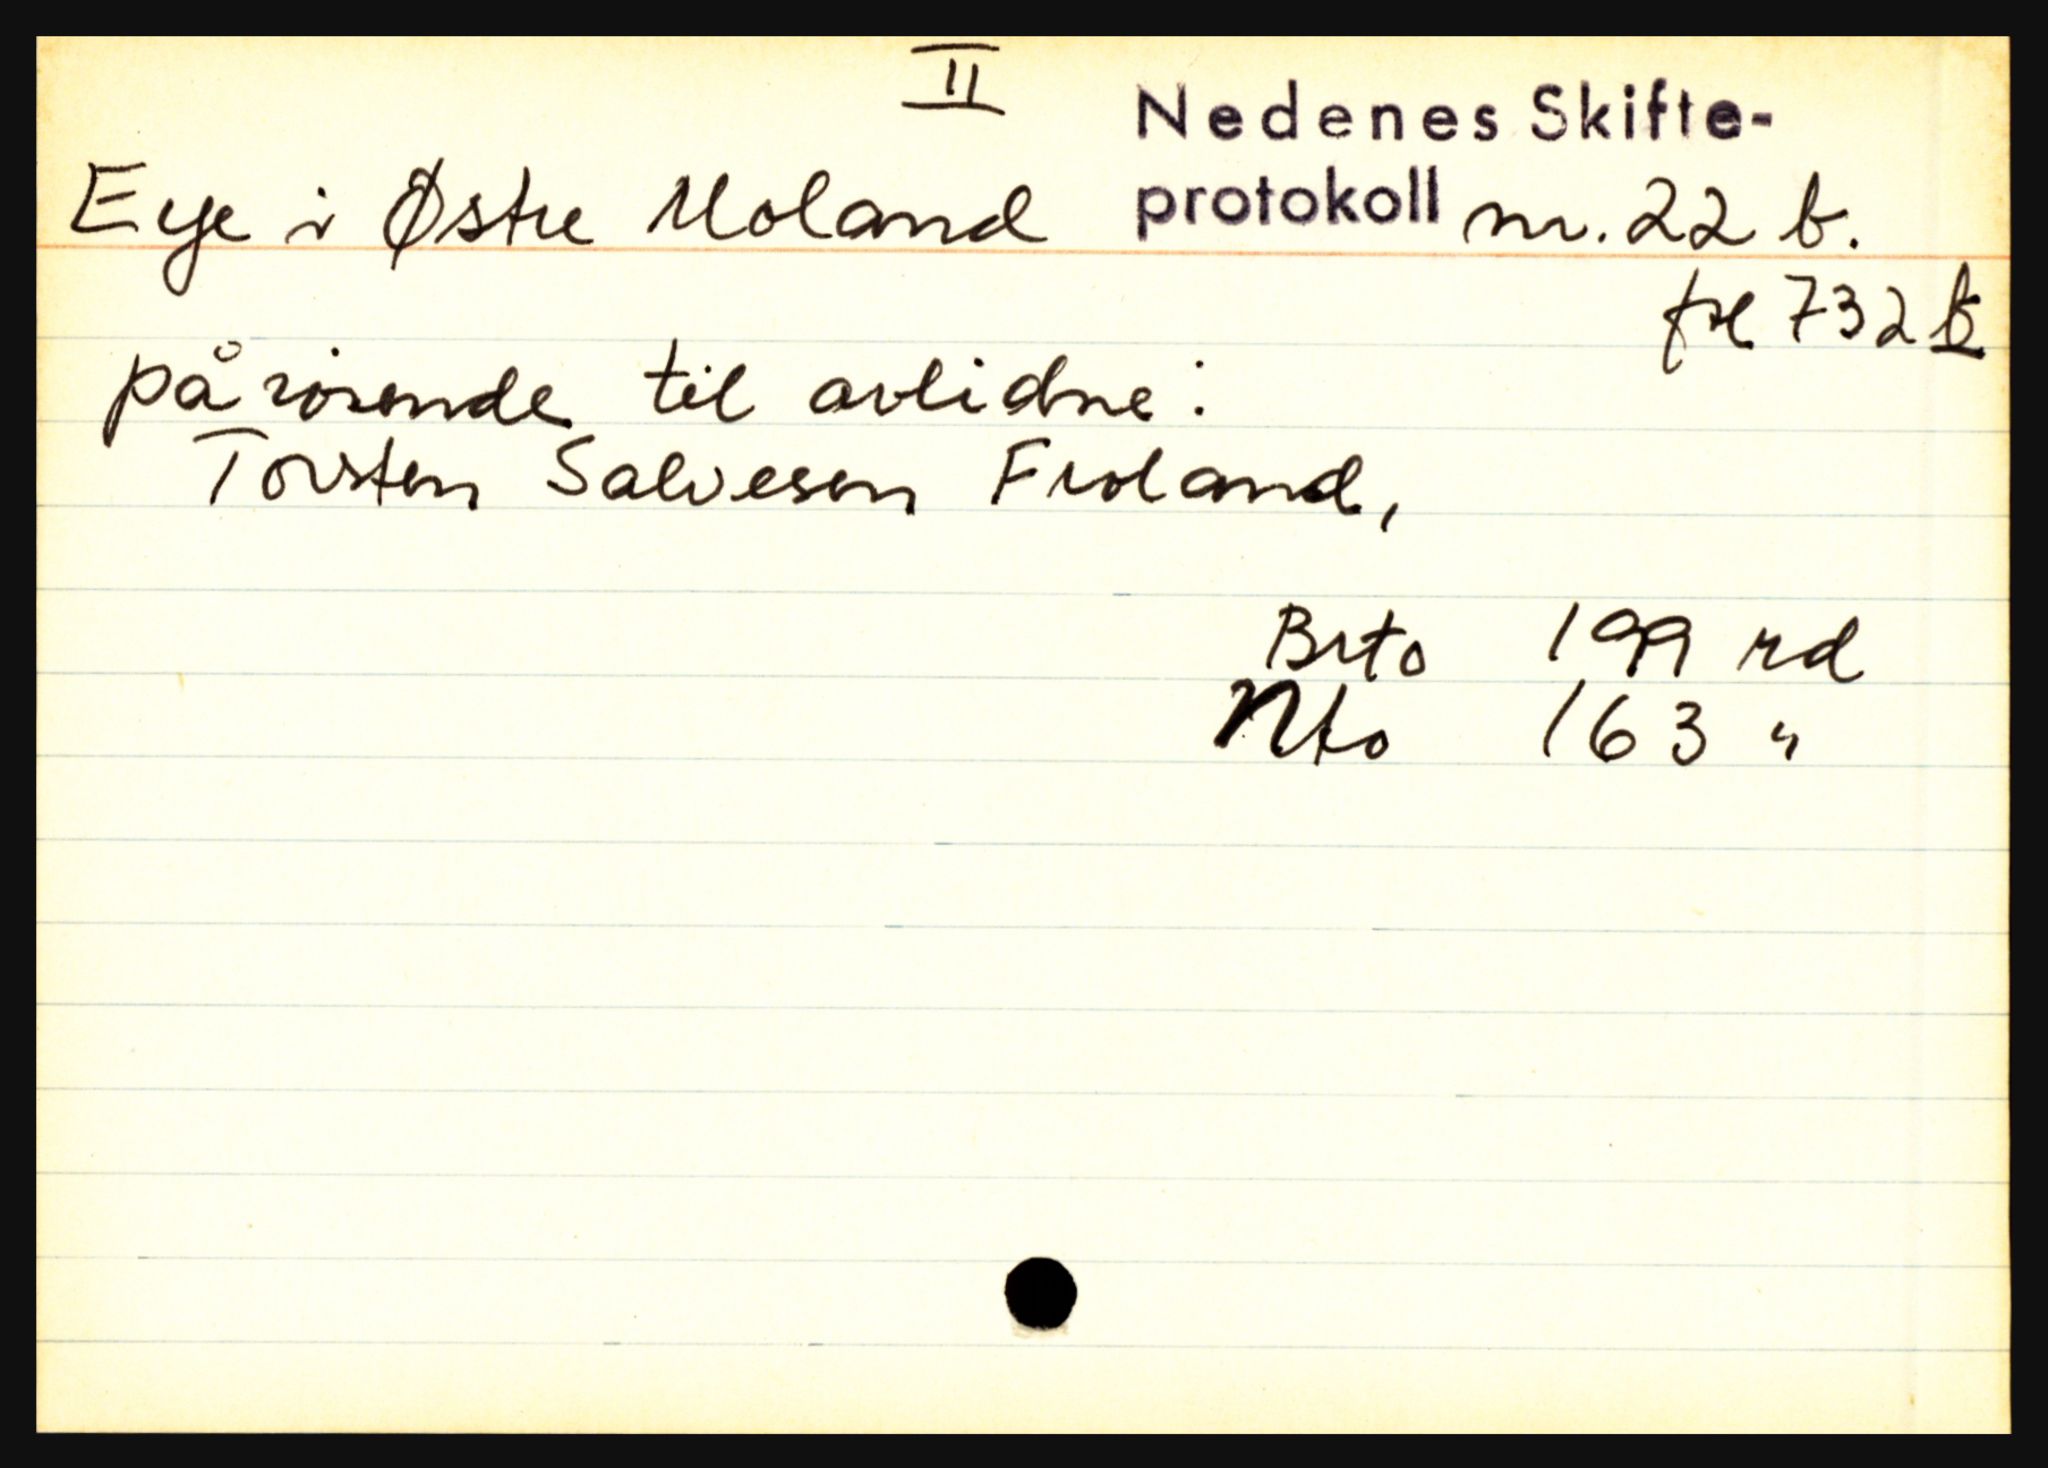 II
Nedenes Skifte-
Eye i Østre Moland protokoll nr. 22 b.
fol 732 b
pårørende til avlidne:
Torsten Salvesen Froland,
Brto 199 rd
Nto 163 "